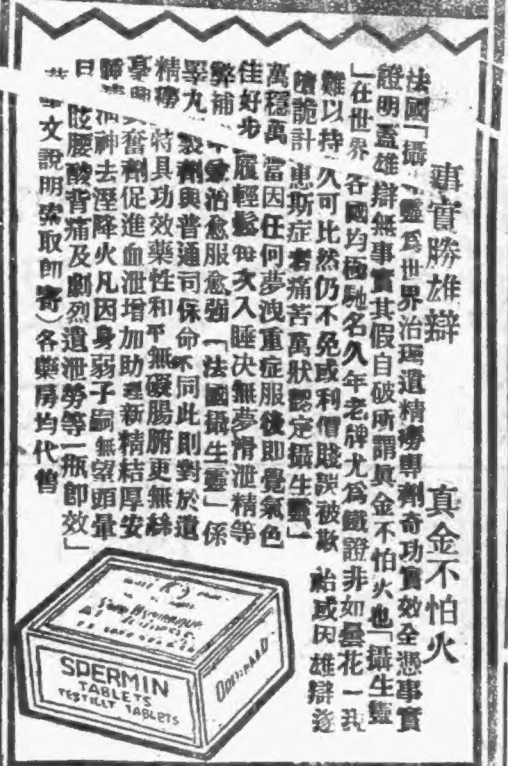 事實勝雄辯　真金不怕火
法國「攝靈為世界治遺精專劑奇功實效全憑事實
證明蓋雄辯無事實其假自破所謂眞金不怕火也「攝生靈
」在世界各國均極馳名久年老牌尤爲鐵證非如曇花一現
難以持久可比然仍不免或利價賤誤被欺給或因雄辯遂
墮詭計患斯症者痛苦萬狀認定攝生靈」
萬穩萬當因任何夢洩重症服後即覺氣色
佳好步履輕鬆每次入睡决無夢滑泄精等
弊補治愈服愈強「法國攝生靈」係
睪九製劑與普通司保命不同此則對於遺
精特具功效藥性和平無礙腸腑更無絲
毫興奮劑促進血泄增加助理新精結厚安
神去溼降火凡因身弱子嗣無望頭暈
目眩腰酸背痛及劇烈遺泄勞等一瓶即效」
文說明索取即寄）各藥房均代售
SPERMIN
TABLETS
TESTICLT TABLETS